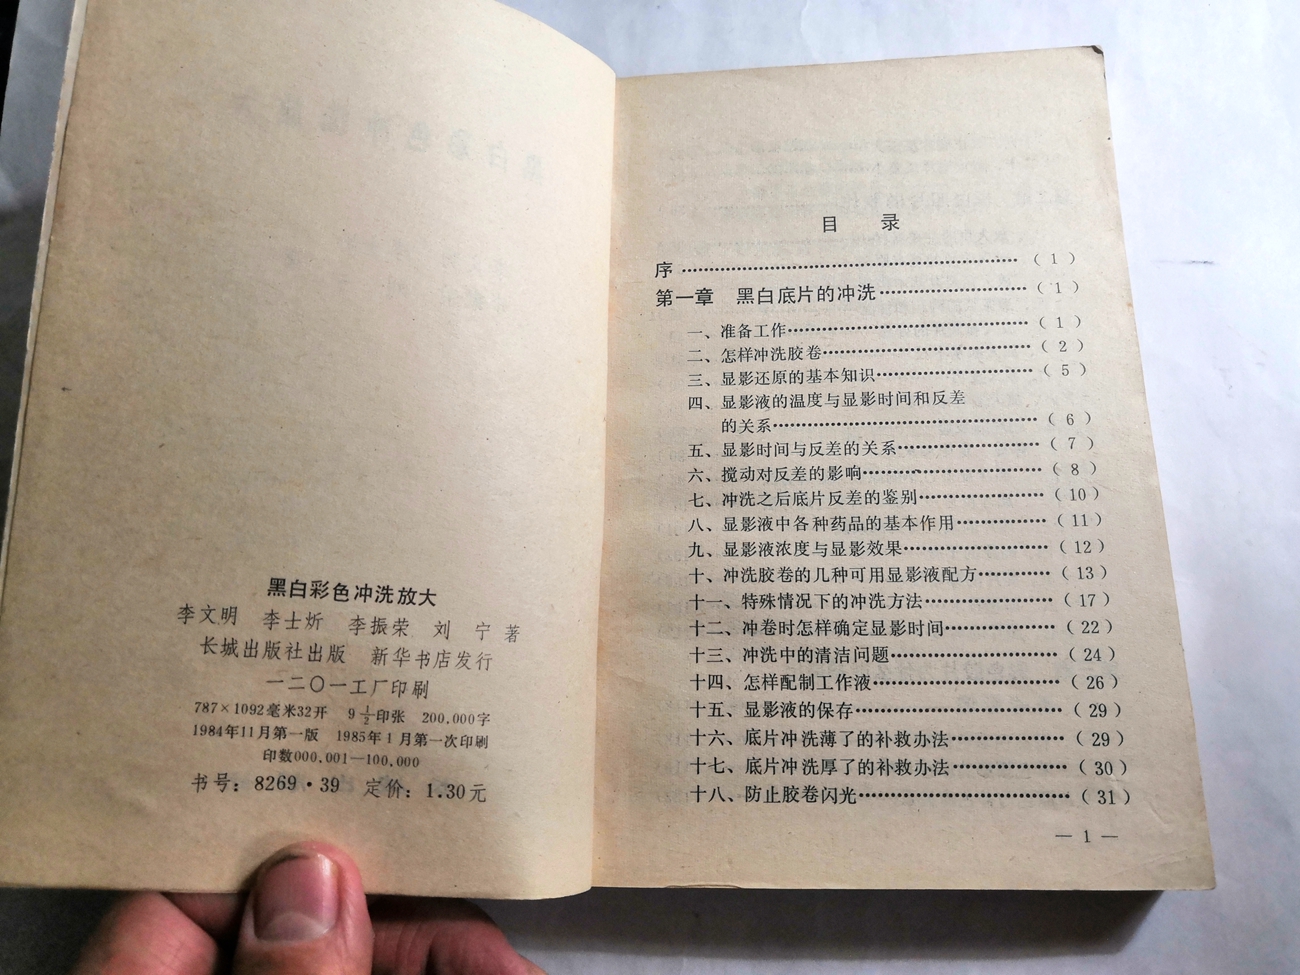 黑白彩色冲洗放大
李文明 李士炘 李振荣 刘 宁 著
长城出版社出版 新华书店发行
一二〇一工厂印刷
787×1092毫米32开 9½印张 200,000字
1984年11月第一版 1985年1月第一次印刷
印数000,001—100,000
书号：8269·39 定价：1.30元
目 录
序……………………………………………………（1）
第一章 黑白底片的冲洗………………………（1）
一、准备工作……………………………………（1）
二、怎样冲洗胶卷………………………………（2）
三、显影还原的基本知识………………………（5）
四、显影液的温度与显影时间和反差
的关系……………………………………………（6）
五、显影时间与反差的关系……………………（7）
六、搅动对反差的影响…………………………（8）
七、冲洗之后底片反差的鉴别…………………（10）
八、显影液中各种药品的基本作用……………（11）
九、显影液浓度与显影效果……………………（12）
十、冲洗胶卷的几种可用显影液配方…………（13）
十一、特殊情况下的冲洗方法…………………（17）
十二、冲卷时怎样确定显影时间………………（22）
十三、冲洗中的清洁问题………………………（24）
十四、怎样配制工作液…………………………（26）
十五、显影液的保存……………………………（29）
十六、底片冲洗薄了的补救办法………………（29）
十七、底片冲洗厚了的补救办法………………（30）
十八、防止胶卷闪光……………………………（31）
— 1 —